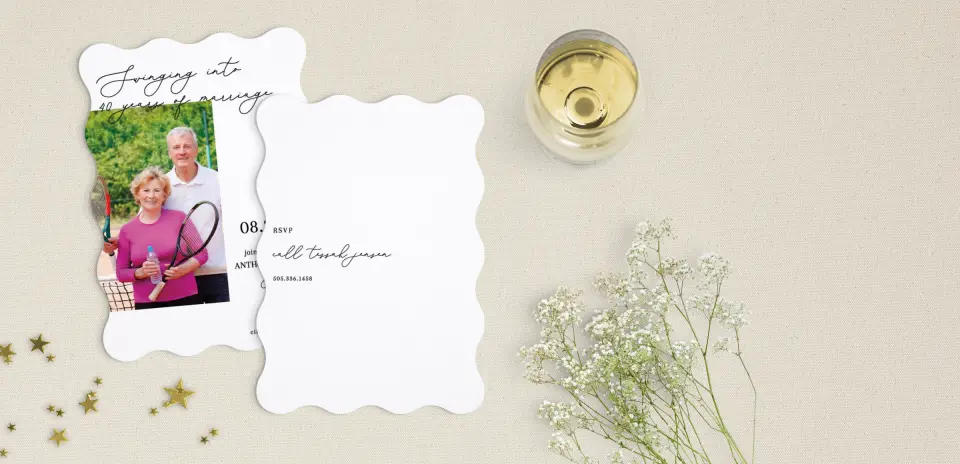 Swinging into
40 years of marriage
08.
join
ANTH
RSVP
call tessah jensen
505.536.1458